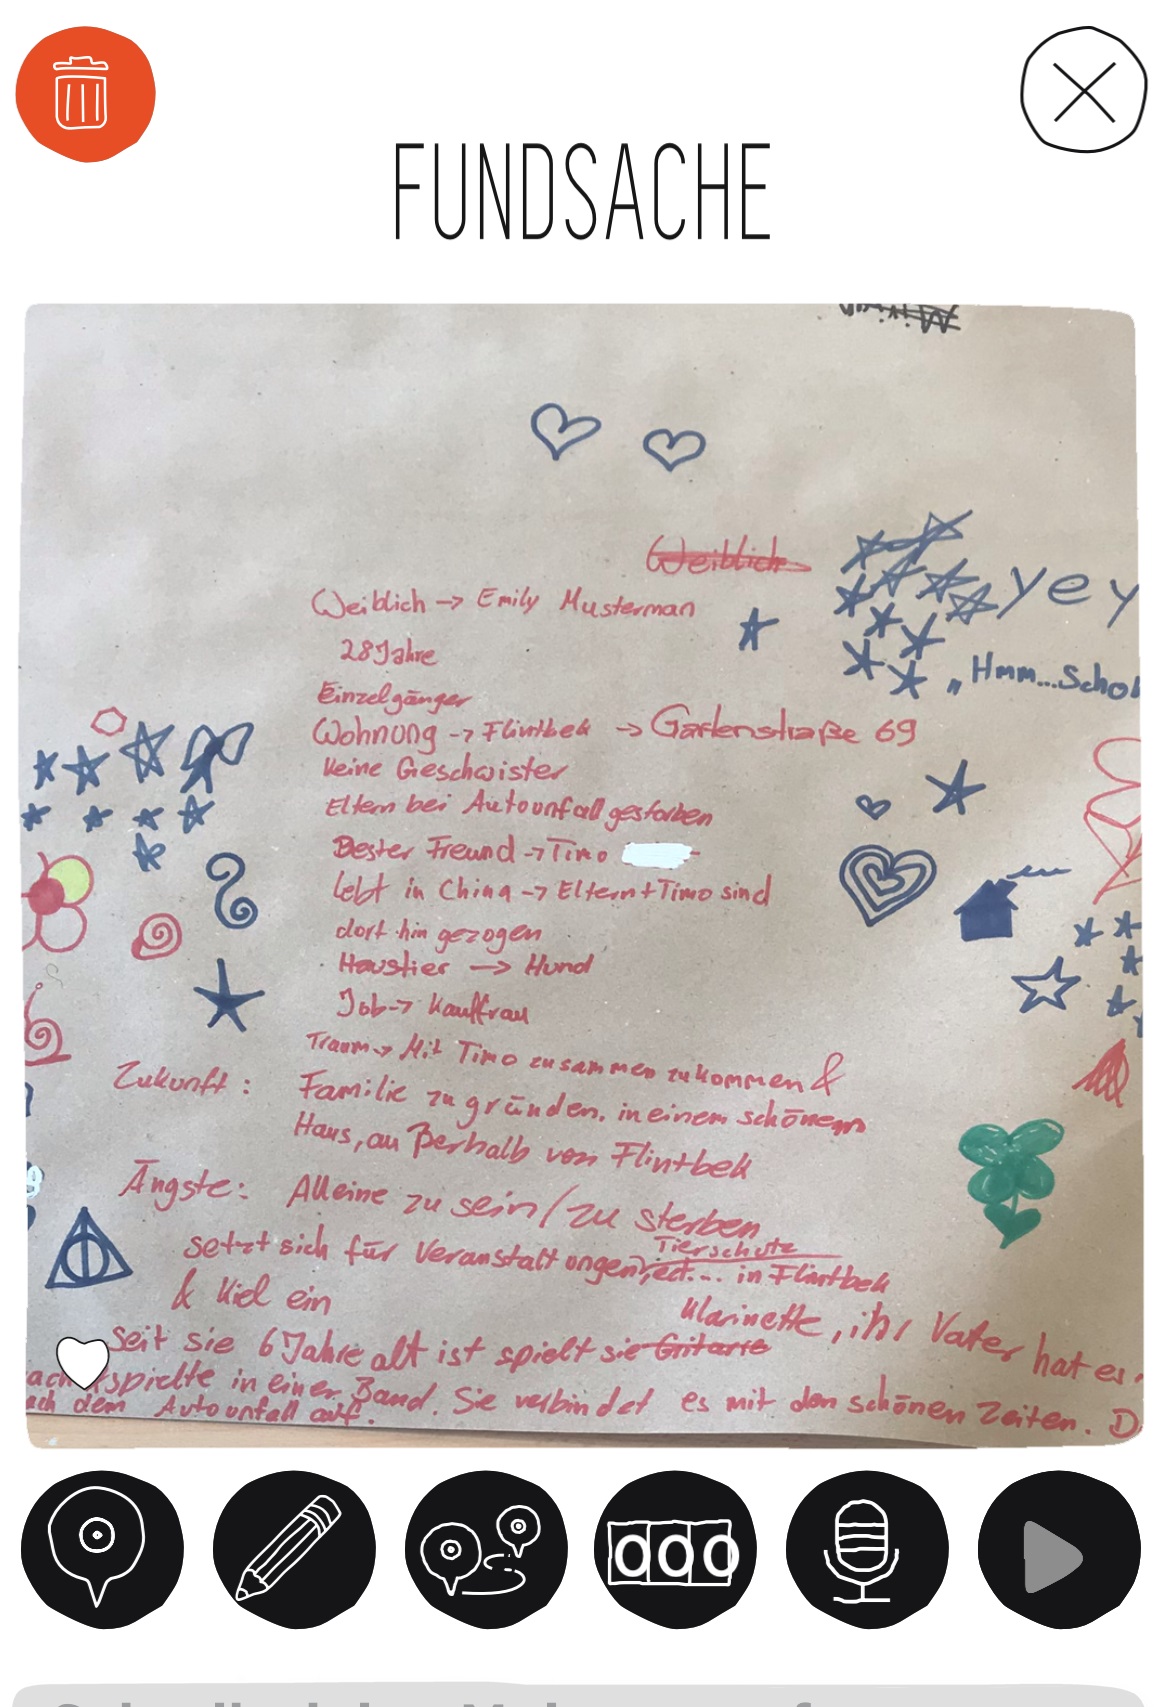 FUNDSACHE
Weiblich
Weiblich → Emily Musterman
yey
28 Jahre
„Hmm...Schol
Einzelgänger
Wohnung → Flintbek → Gartenstraße 69
keine Geschwister
Eltern bei Autounfall gestorben
Bester Freund → Timo
Lebt in China → Eltern + Timo sind
dort hin gezogen
Haustier → Hund
Job → Kauffrau
Traum → Mit Timo zusammen zukommen &
Zukunft: Familie zu gründen. in einem schönem
Haus, außerhalb von Flintbek
Ängste: Alleine zu sein/zu sterben
setzt sich für Veranstaltungen Tierschutz ... in Flintbek
& Kiel ein
Seit sie 6 Jahre alt ist spielt sie Gitarre Klarinette, ihr Vater hat es
spielte in einer Band. Sie verbindet es mit den schönen Zeiten. D
ach dem Autounfall auf.
000